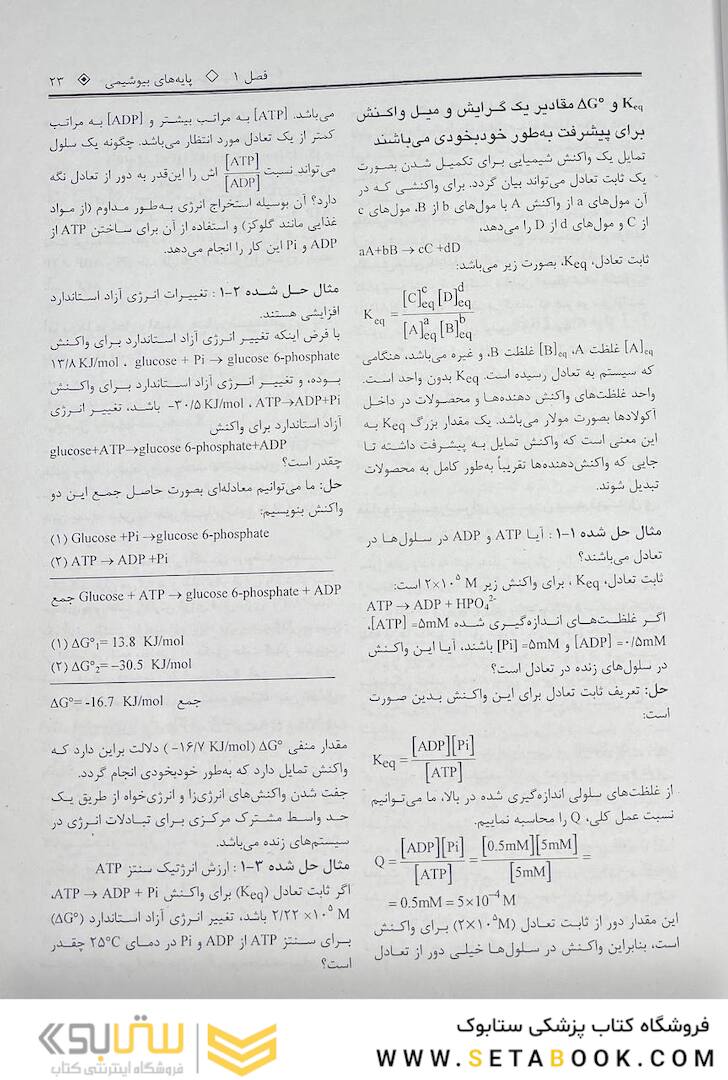 فصل ۱ ◇ پایه‌های بیوشیمی ◈ ۲۳
Keq و ΔG° مقادیر یک گرایش و میل واکنش
برای پیشرفت به‌طور خودبخودی می‌باشند
تمایل یک واکنش شیمیایی برای تکمیل شدن بصورت
یک ثابت تعادل می‌تواند بیان گردد. برای واکنشی که در
آن مول‌های a از واکنش A با مول‌های b از B، مول‌های c
از C و مول‌های d از D را می‌دهد،
aA+bB → cC +dD
ثابت تعادل، Keq، بصورت زیر می‌باشد:
Keq = [C]ᶜeq [D]ᵈeq / [A]ᵃeq [B]ᵇeq
[A]eq غلظت A، [B]eq غلظت B، و غیره می‌باشد، هنگامی
که سیستم به تعادل رسیده است. Keq بدون واحد است.
واحد غلظت‌های واکنش دهنده‌ها و محصولات در داخل
آکولادها بصورت مولار می‌باشد. یک مقدار بزرگ Keq به
این معنی است که واکنش تمایل به پیشرفت داشته تا
جایی که واکنش‌دهنده‌ها تقریباً به‌طور کامل به محصولات
تبدیل شوند.
مثال حل شده ۱-۱ : آیا ATP و ADP در سلول‌ها در
تعادل می‌باشند؟
ثابت تعادل، Keq ، برای واکنش زیر ۲×۱۰⁵ M است:
ATP → ADP + HPO₄²⁻
اگر غلظت‌های اندازه‌گیری شده [ATP] =۵mM،
[ADP] =۰/۵mM و [Pi] =۵mM باشند، آیا این واکنش
در سلول‌های زنده در تعادل است؟
حل: تعریف ثابت تعادل برای این واکنش بدین صورت
است:
Keq = [ADP][Pi] / [ATP]
از غلظت‌های سلولی اندازه‌گیری شده در بالا، ما می‌توانیم
نسبت عمل کلی، Q را محاسبه نماییم.
Q = [ADP][Pi] / [ATP] = [0.5mM][5mM] / [5mM] =
= 0.5mM = 5×10⁻⁴ M
این مقدار دور از ثابت تعادل (۲×۱۰⁵M) برای واکنش
است، بنابراین واکنش در سلول‌ها خیلی دور از تعادل
می‌باشد. [ATP] به مراتب بیشتر و [ADP] به مراتب
کمتر از یک تعادل مورد انتظار می‌باشد. چگونه یک سلول
می‌تواند نسبت [ATP] / [ADP] اش را این‌قدر به دور از تعادل نگه
دارد؟ آن بوسیله استخراج انرژی به‌طور مداوم (از مواد
غذایی مانند گلوکز) و استفاده از آن برای ساختن ATP از
ADP و Pi این کار را انجام می‌دهد.
مثال حل شده ۲-۱ : تغییرات انرژی آزاد استاندارد
افزایشی هستند.
با فرض اینکه تغییر انرژی آزاد استاندارد برای واکنش
۱۳/۸ KJ/mol ، glucose + Pi → glucose 6-phosphate
بوده، و تغییر انرژی آزاد استاندارد برای واکنش
-۳۰/۵ KJ/mol ، ATP→ADP+Pi باشد، تغییر انرژی
آزاد استاندارد برای واکنش
glucose+ATP→glucose 6-phosphate+ADP
چقدر است؟
حل: ما می‌توانیم معادله‌ای بصورت حاصل جمع این دو
واکنش بنویسیم:
(۱) Glucose +Pi →glucose 6-phosphate
(۲) ATP → ADP +Pi
جمع Glucose + ATP → glucose 6-phosphate + ADP
(۱) ΔG°₁= 13.8 KJ/mol
(۲) ΔG°₂= –30.5 KJ/mol
ΔG°= -16.7 KJ/mol جمع
مقدار منفی ΔG° (-۱۶/۷ KJ/mol) دلالت براین دارد که
واکنش تمایل دارد که به‌طور خودبخودی انجام گردد.
جفت شدن واکنش‌های انرژی‌زا و انرژی‌خواه از طریق یک
حد واسط مشترک مرکزی برای تبادلات انرژی در
سیستم‌های زنده می‌باشد.
مثال حل شده ۳-۱ : ارزش انرژتیک سنتز ATP
اگر ثابت تعادل (Keq) برای واکنش ATP → ADP + Pi،
۲/۲۲ ×۱۰⁵ M باشد، تغییر انرژی آزاد استاندارد (ΔG°)
برای سنتز ATP از ADP و Pi در دمای ۲۵°C چقدر
است؟
فروشگاه کتاب پزشکی ستابوک
WWW.SETABOOK.COM
ستابوک
فروشگاه اینترنتی کتاب